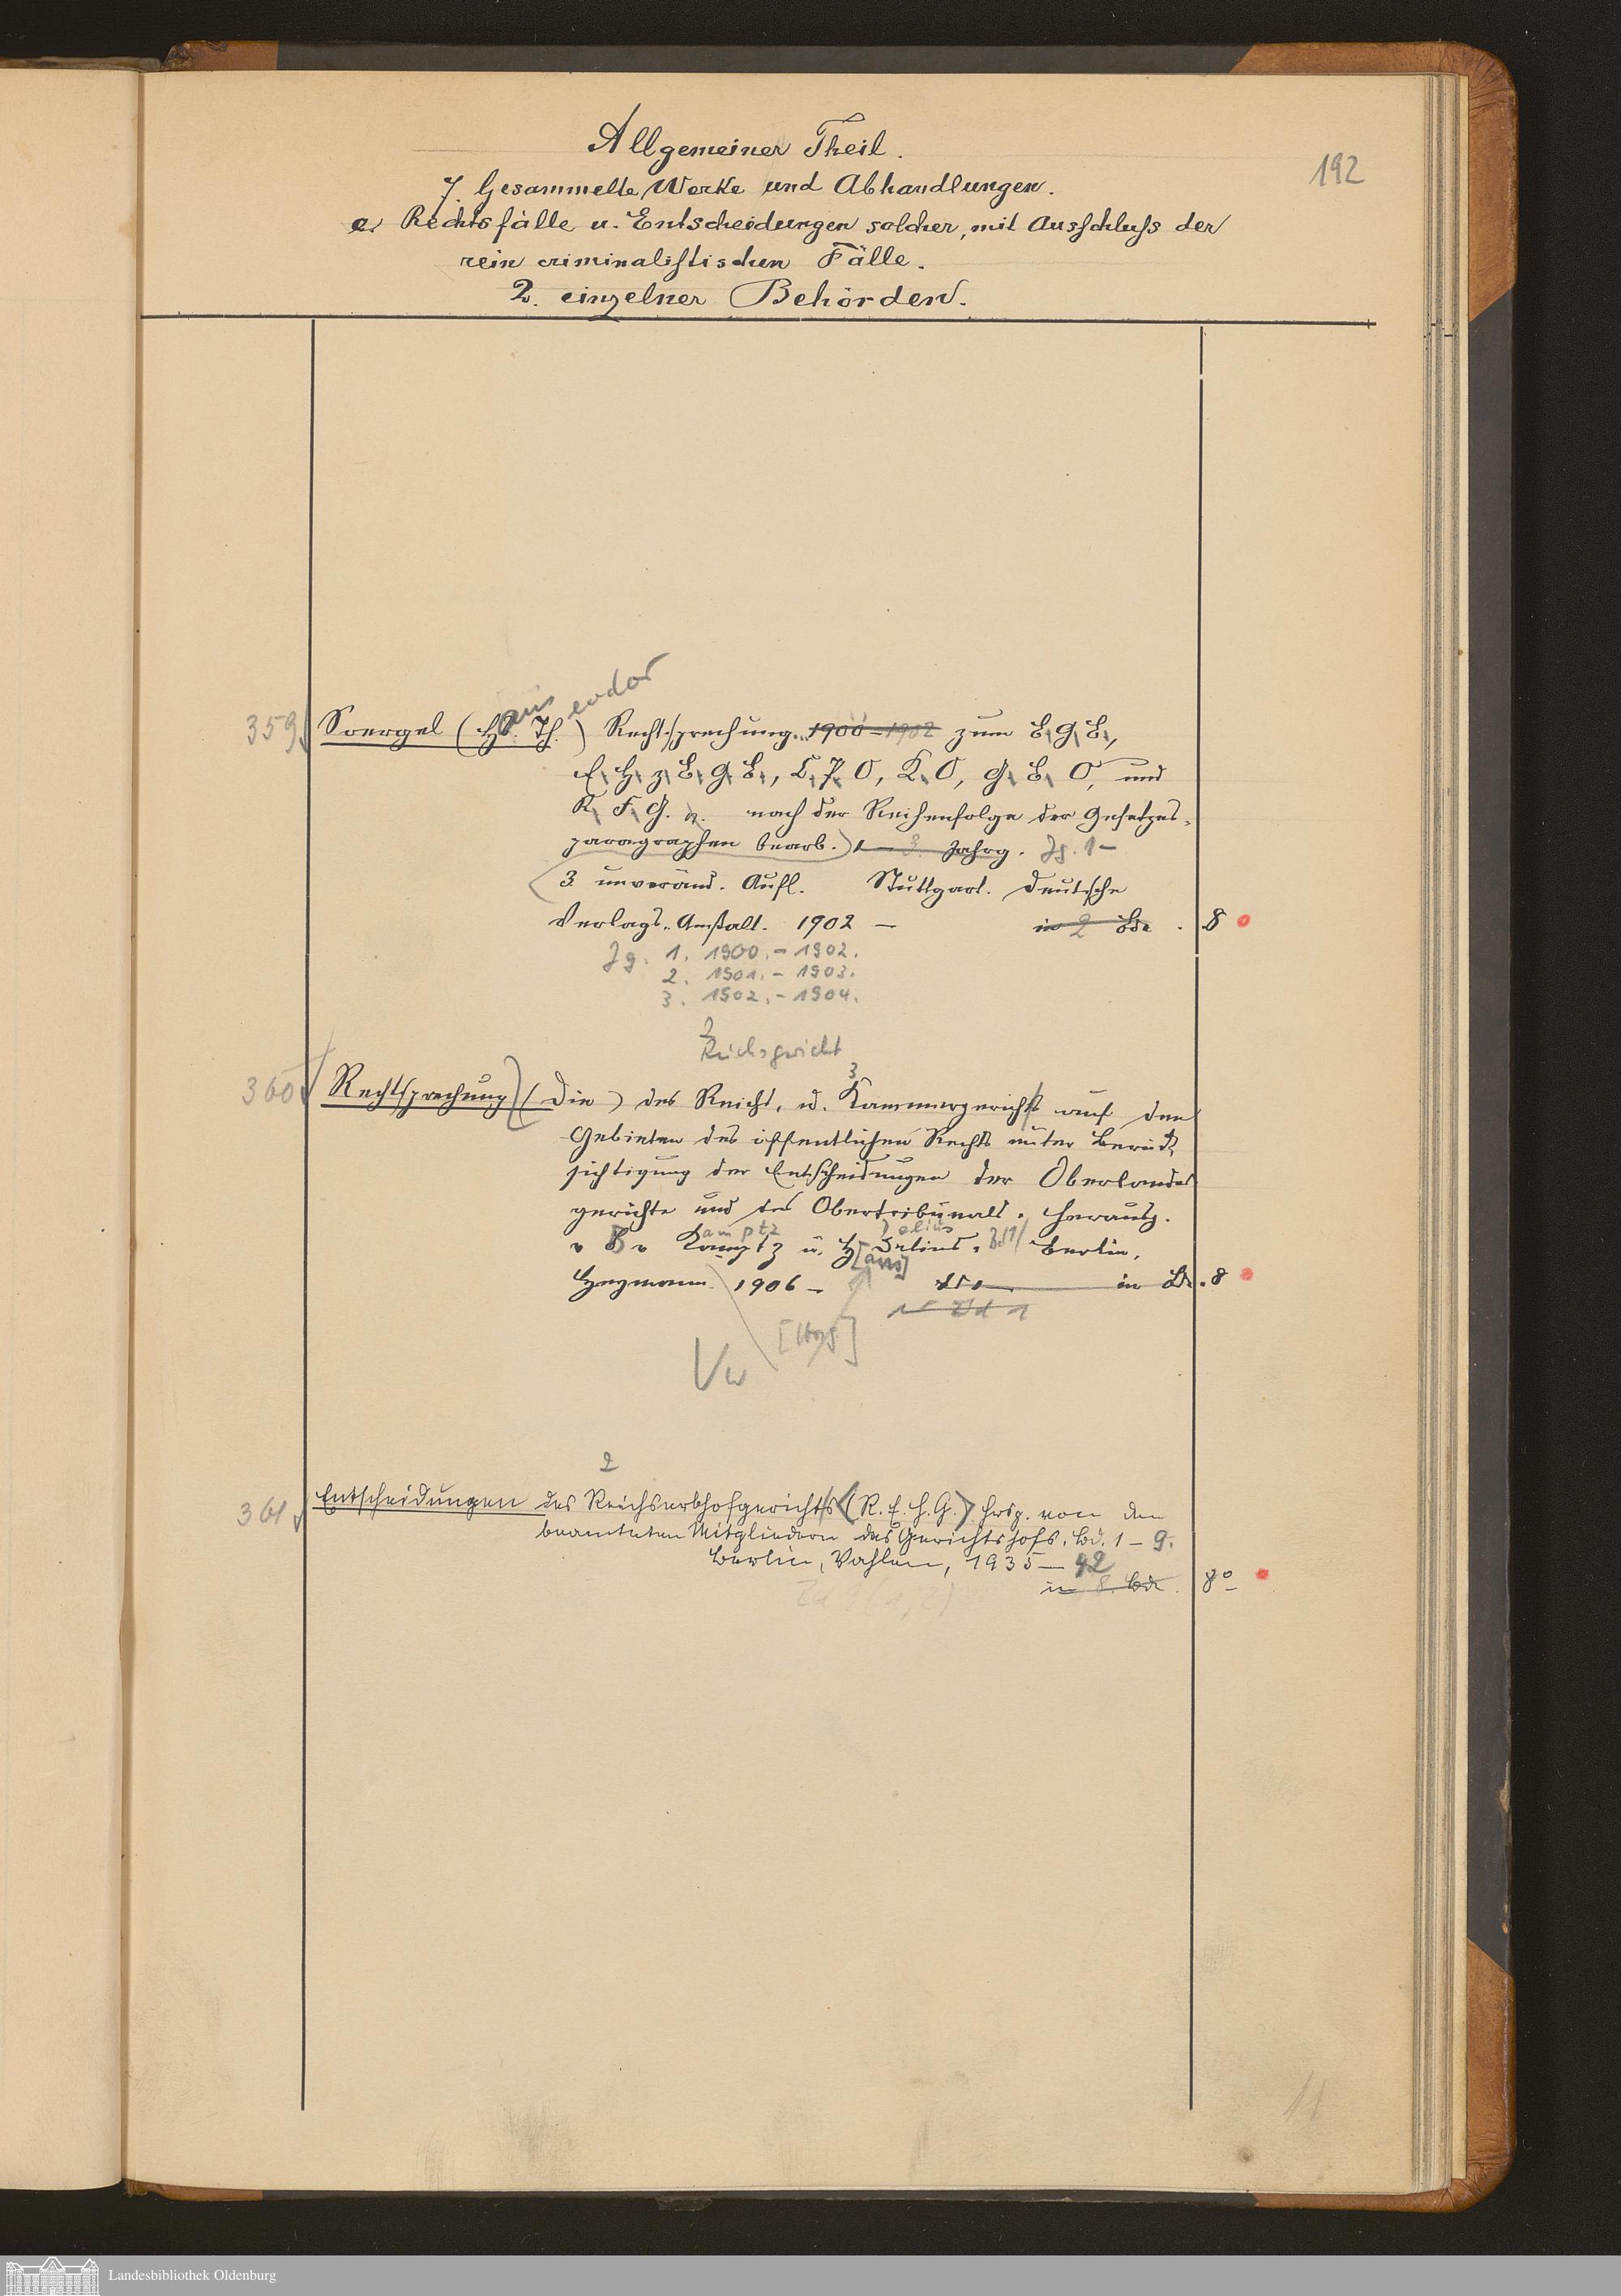 Allgemeiner Theil.
192
7. Gesammelte Werke und Abhandlungen.
e. Rechtsfälle u. Entscheidungen solcher, mit Ausschluss der
rein criminalistischen Fälle.
2. einzelner Behörden.
ans eodor
359 Soergel (Hs. Th.) Rechtsprechung 1900-1902 zum B.G.B.,
E. H. z. B. G. B., C. P. O, K. O, G. B. O, und
R. F. G. nach der Reihenfolge der Gesetzes-
paragraphen bearb. 1-3. Jahrg. Jg. 1-
3 unveränd. Aufl. Stuttgart. Deutsche
Verlags-Anstalt. 1902 — in 2 Bde. 8
Jg. 1. 1900.-1902.
2. 1901.-1903.
3. 1902.-1904.
2
Reichsgericht
3
360 Rechtsprechung (Die) des Reichs- u. Kammergerichts auf den
Gebieten des öffentlichen Rechts unter Berück-
sichtigung der Entscheidungen der Oberlandes
gerichte und des Obertribunals. Herausg.
amptz elius
v B v Kamptz u. H Delius. Bd 1 Berlin,
[ans]
Heymann. 1906 - in Bd. 8
Bd 1
[Hrsg]
2
361 Entscheidungen des Reichserbhofgerichts (R. E. H. G.) hrsg. von den
beamteten Mitgliedern des Gerichtshofs. Bd. 1-9.
Berlin, Vahlen, 1935-42
in 8. Bde. 8°
Bd 9 (1, 2)
Landesbibliothek Oldenburg